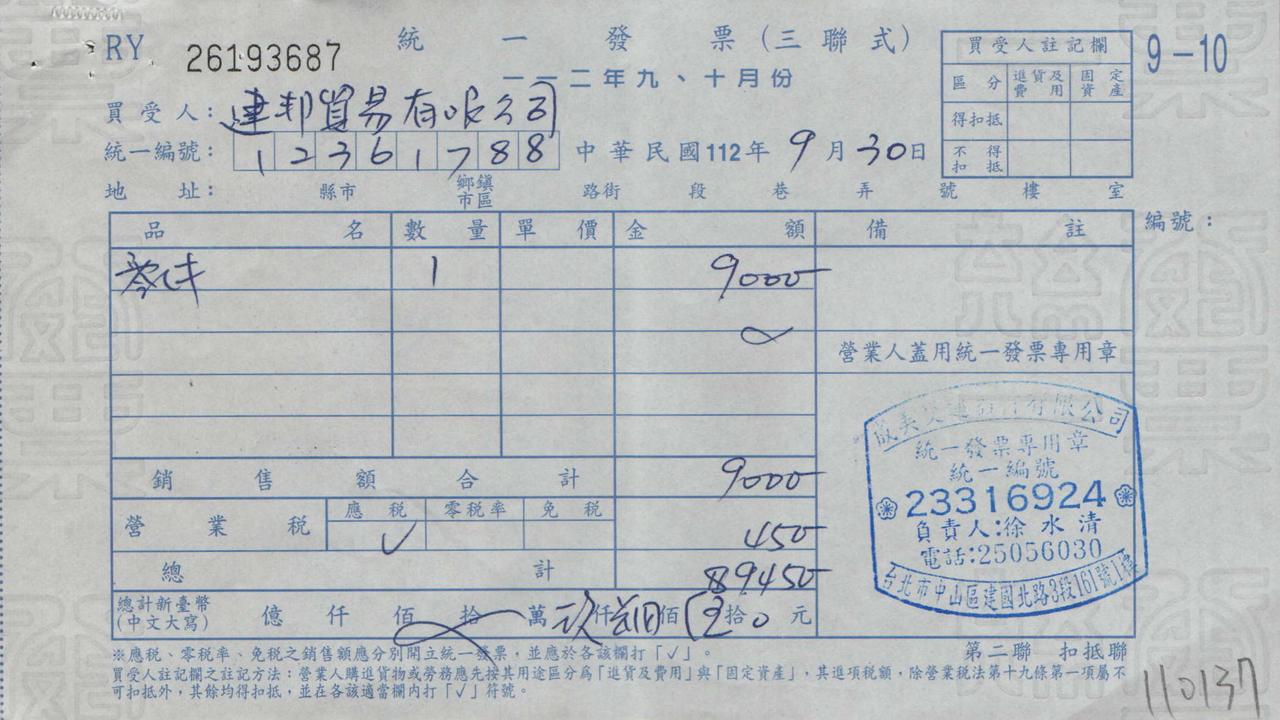 RY 26193687
統一發票(三聯式)
9-10
一一二年九、十月份
買受人註記欄
區分 進貨及費用 固定資產
得扣抵
不得扣抵
買受人: 建邦貿易有限公司
統一編號: 12361788 中華民國112年9月30日
地址: 縣市 鄉鎮市區 路街 段 巷 弄 號 樓 室
品名 數量 單價 金額 備註 編號:
零件 1 9000
營業人蓋用統一發票專用章
銷售額合計 9000
營業稅 應稅 零稅率 免稅
✓ 450
總計 $9450
總計新臺幣(中文大寫) 億仟佰拾萬玖仟肆佰伍拾0元
有限公司
統一發票專用章
統一編號
23316924
負責人:徐水清
電話:25056030
台北市中山區建國北路3段161號1樓
※應稅、零稅率、免稅之銷售額應分別開立統一發票,並應於各該欄打「✓」。
第二聯 扣抵聯
買受人註記欄之註記方法:營業人購進貨物或勞務應先按其用途區分為「進貨及費用」與「固定資產」,其進項稅額,除營業稅法第十九條第一項屬不
可扣抵外,其餘均得扣抵,並在各該適當欄內打「✓」符號。
110137